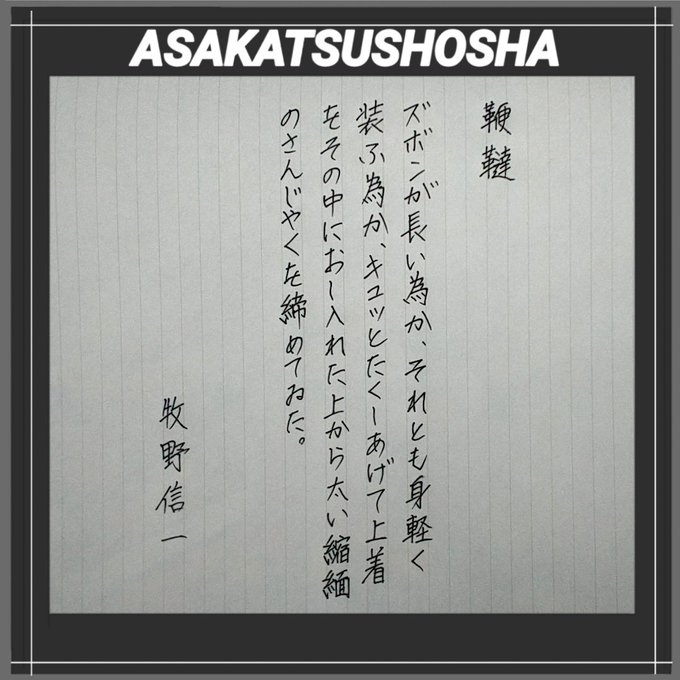 ASAKATSUSHOSHA
鞭韃
ズボンが長い為か、それとも身軽く
装ふ為か、キュッとたくしあげて上着
をその中におし入れた上から太い縮緬
のさんじやくを締めてゐた。
牧野信一